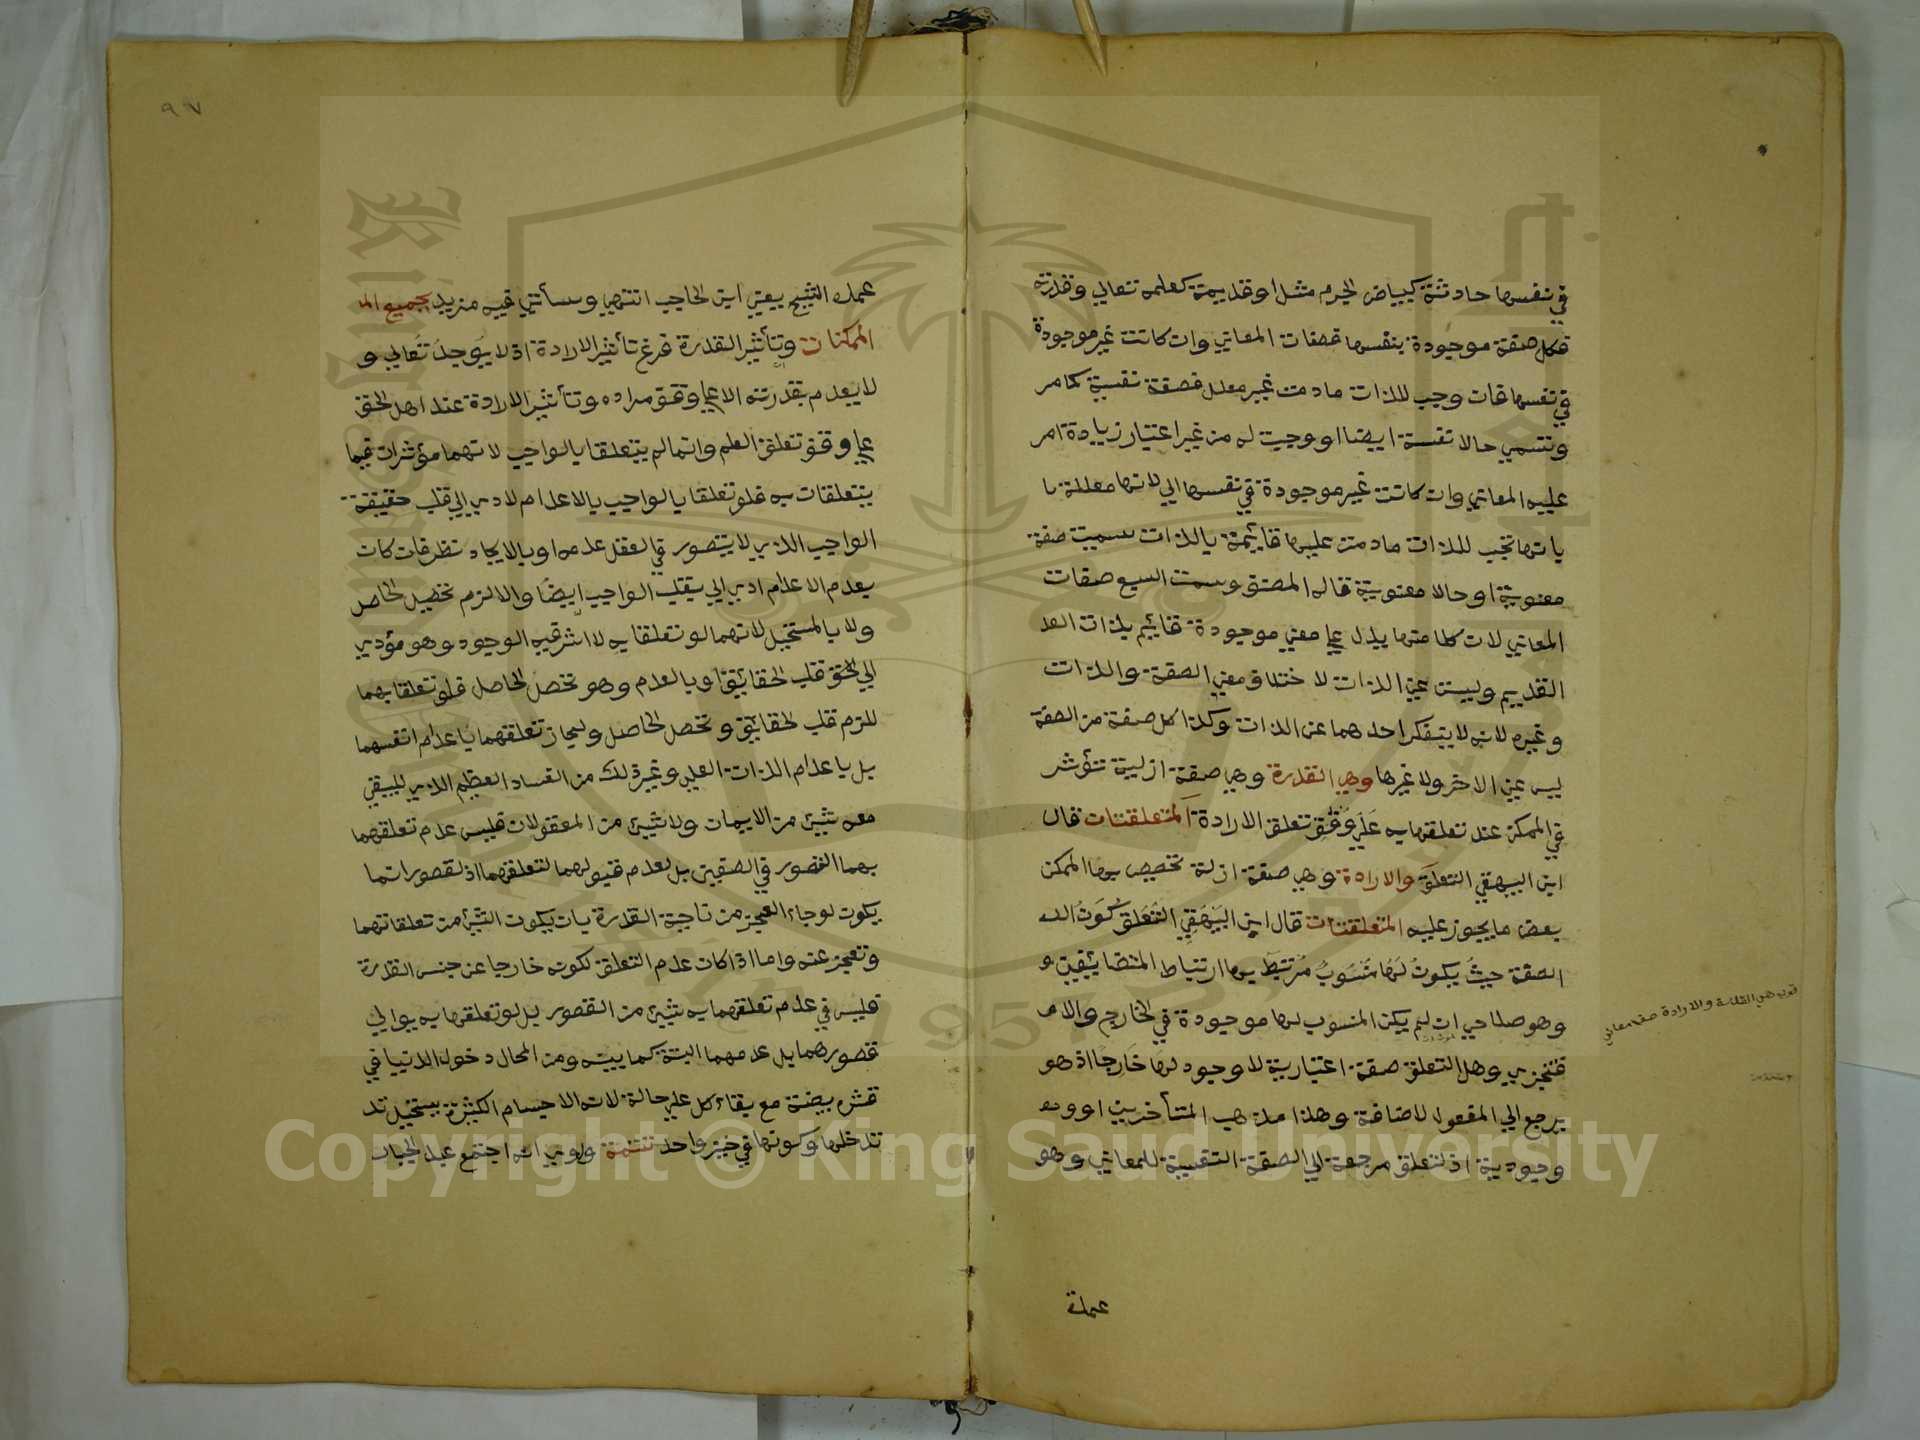 في نفسها حادثة كبياض الجرم مثلا او قديمة كعلمه تعالي وقدرته
فكل صفة موجودة بنفسها فصفات المعاني وان كانت غير موجودة
في نفسها فان وجب للذات مادمت غير معلل فصفة نفسية كما مر
وتسمي حالا نفسة ايضا او وجبت له من غير اعتبار زيادة امر
عليه المعاني وان كانت غير موجودة في نفسها الي لانها معللة
بانها تجب للذات مادمت عليها قايمة بالذات سميت صفة
معنوية او حالا معنوية قاله المصنف وسمت السبع صفات
المعاني لان كلا منها يدل علي معني موجودة قايم بذات
القديم وليست عين الذات لا ختلاف معني الصفة والذات
وغيره لانه لا ينفكر احدهما عن الذات وكذا كل صفة من الصفة
ليس عين الاخر ولا غيرها وهي القدرة وهي صفة ازلية تؤثر
في الممكن عند تعلقها به علي وفق تعلق الارادة المتعلقتان قال
ابن البيهقي التعلق والارادة وهي صفة ازلة تخصيص بها الممكن
بعض ما يجوز عليه المتعلقتان قال ابن البيهقي التعلق كون
الصفة حيث يكون لها منسوب مرتبط بها ارتباط المتضايفين و
وهو صلاحي ان لم يكن المنسوب لها موجودة في الخارج والا
فتنجزي وهل التعلق صفة اعتبارية لا وجود لها خارجا اذ هو
يرجع الي المفعول لاضافة وهذا مذهب المتأخرين او
وجودية اذ لتعلق مرجعة الي الصفة النفسية للمعاني وهو
عمدة
قوله هي القدرة والارادة صفة معاني
٩٧
عمدة الشيخ يعني ابن الحاجب انتهي وسيأتي فيه مزيد بجميع الم
الممكنات وتأثير القدرة فرع تأثير الارادة اذ لا يوجد تعالي و
لا يعدم بقدرته الا علي وفق مراده وتأثير الارادة عند اهل الحق
علي وفق تعلق العلم وانما لم يتعلقا بالواجب لانهما مؤثرات فيما
يتعلقان به فلو تعلقا بالواجب بالاعدام لادي الي قلب حقيقة
الواجب الذي لا يتصور في العقل عدمه او بالايجاد نظر فان كان
بعدم الاعدام ادي الي يقلب الواجب ايضا والا لزم تحصيل الحاصل
ولا بالمستحيل لانهما لو تعلقا به لا اثر فيه الوجود وهو مؤدي
الي الحق قلب الحقايق او بالعدم وهو تحصل الحاصل فلو تعلقا بهما
للزم قلب الحقايق وتحصل الحاصل ولجاز تعلقهما باعدام انفسهما
بل باعدام الذات العلي وغير ذلك من الفساد العظيم الذي لا يبقي
معه شيئ من الايمان ولا شيئ من المعقولات فليس عدم تعلقهما
بهما القصور في الصفتين بل لعدم قبولهما لتعلقهما اذ القصور انما
يكون لو جاء العجز من ناحية القدرة بان يكون الشيئ من تعلقاتهما
وتعجز عنه واما اذا كان عدم التعلق لكونه خارجا عن جنس القدرة
فليس في عدم تعلقهما به شيئ من القصور بل لو تعلقها به يوالي
قصورهما بل عدمهما البتة كما بينه ومن المحال دخول الدنيا في
قشر بيضة مع بقاء كل علي حالة لانه الاجسام الكثيرة يستحيل تد
تدخلها وكونها في حيز واحد تتمة ولو
Copyright © King Saud University